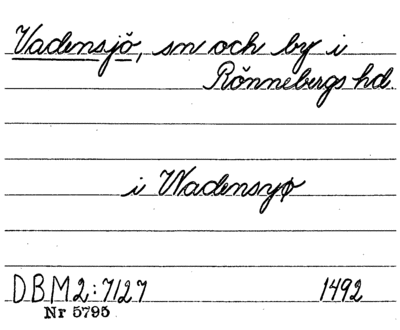 Vadensjö, sn och by i
Rönnebergs hd.
i Wadensyø
DBM2:7127 1492
Nr 5795